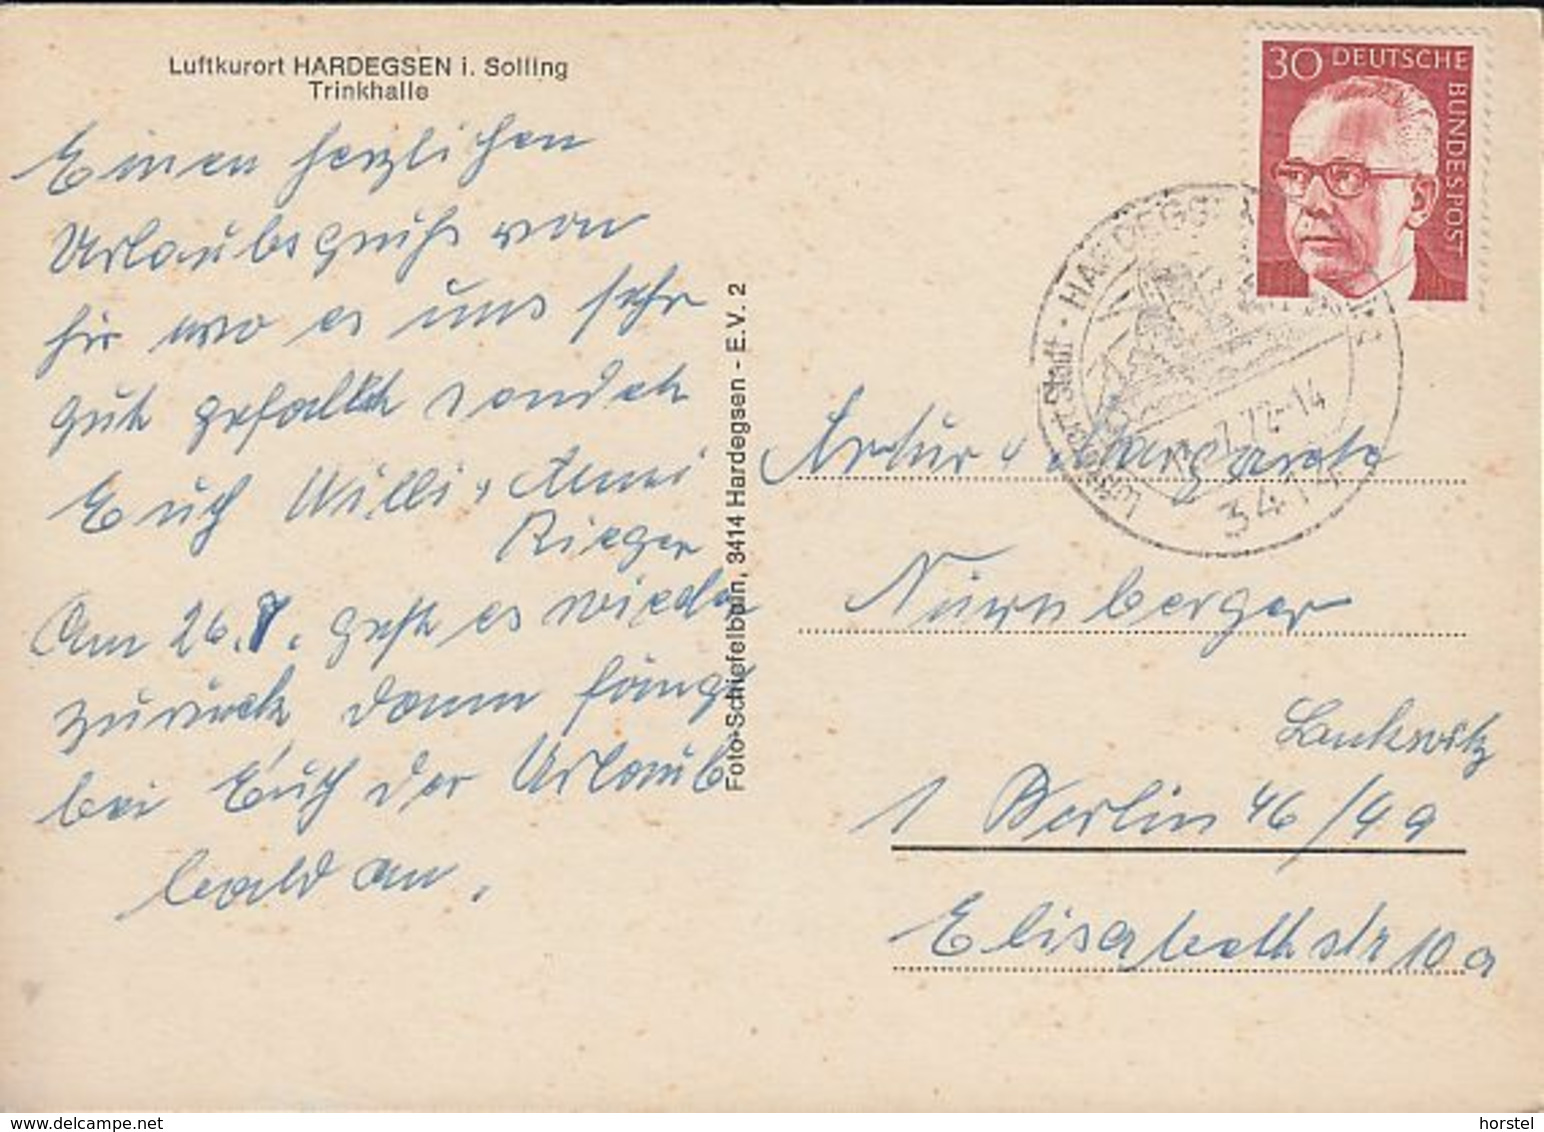 Luftkurort HARDEGSEN i. Solling
Trinkhalle
Einen herzlichen
Urlaubsgruß von
hir wo es uns sehr
gut gefallt sendet
Euch Willi + Anni
Rieger
Am 26. 7. geht es wieder
zurück dann fängt
bei Euch der Urlaub
bald an.
Foto-Schiefelbein, 3414 Hardegsen - E.V. 2
30 DEUTSCHE
BUNDESPOST
HARDEGSEN
72-14
3414
Artur + Margarete
Nürnberger
Lankwitz
1 Berlin 46/49
Elisabethstr 10a
horstel